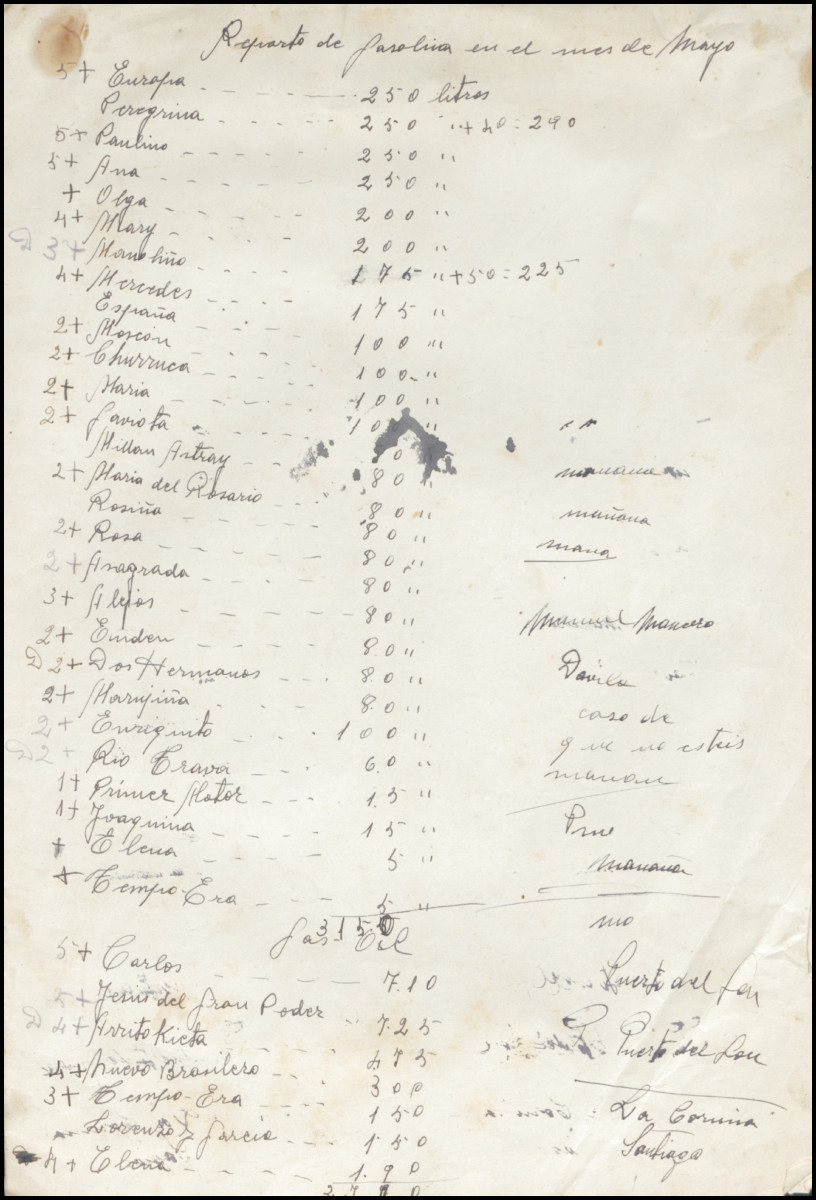 Reparto de Gasolina en el mes de Mayo
5+ Europa - - - - - - - 250 litros
Peregrina - - - - 250 " + 40 = 290
5+ Paulino - - - - 250 "
5+ Ana - - - - 250 "
+ Olga - - - - 200 "
4+ Mary - - - - 200 "
D 3+ Manoliño - - - - 175 " + 50 = 225
4+ Mercedes - - - - 175 "
España - - - - 100 "
2+ Moscón - - - - 100 "
2+ Churruca - - - - 100 "
2+ Maria - - - - 100 "
2+ Gaviota - - - -
Millan Astray - - - - 80 "
2+ Maria del Rosario - - 80 "
Rosiña - - - - 80 "
2+ Rosa - - - - 80 "
2+ Asagrada - - - - 80 "
3+ Alejos - - - - 80 "
2+ Emden - - - - 80 "
D 2+ Dos Hermanos - - - 80 "
2+ Marujiña - - - - 80 "
2+ Enriquito - - - - 100 "
D 2+ Rio Trava - - - - 60 "
1+ Primer Motor - - - 15 "
1+ Joaquina - - - - 15 "
+ Elena - - - - 5 "
+ Tempo-Era - - - - 5 "
3150
Gas-Oil
5+ Carlos - - - - 710
5+ Jesus del Gran Poder - - 725
D 4+ Arritokieta - - - - 475
4+ Nuevo Brasilero - - - 300
3+ Tempo-Era - - - - 150
Lorenzo y Garcia - - - 150
4+ Elena - - - - 190
mañana
mañana
mana
Manuel
Davila
caso de
que no esteis
manan
mañana
mo
Puerto del
Puerto del Son
La Coruña
Santiago